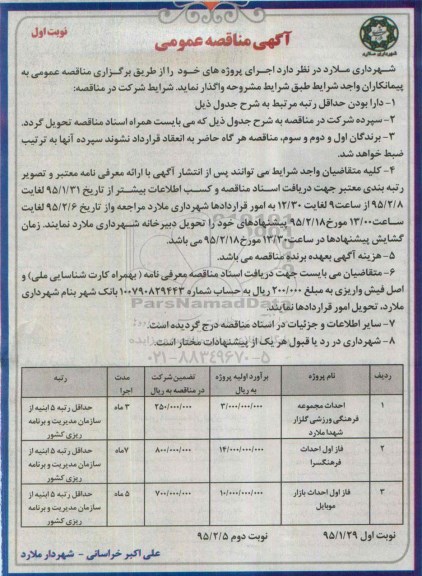 نوبت اول
آگهی مناقصه عمومی
شهرداری ملارد
شهرداری ملارد در نظر دارد اجرای پروژه های خود را از طریق برگزاری مناقصه عمومی به
پیمانکاران واجد شرایط طبق شرایط مشروحه واگذار نماید. شرایط شرکت در مناقصه:
۱- دارا بودن حداقل رتبه مرتبط به شرح جدول ذیل
۲- سپرده شرکت در مناقصه به شرح جدول ذیل که می بایست همراه اسناد مناقصه تحویل گردد.
۳- برندگان اول و دوم و سوم، مناقصه هر گاه حاضر به انعقاد قرارداد نشوند سپرده آنها به ترتیب
ضبط خواهد شد.
۴- کلیه متقاضیان واجد شرایط می توانند پس از انتشار آگهی با ارائه معرفی نامه معتبر و تصویر
رتبه بندی معتبر جهت دریافت اسناد مناقصه و کسب اطلاعات بیشتر از تاریخ ۹۵/۱/۳۱ لغایت
۹۵/۲/۸ از ساعت ۹ لغایت ۱۲/۳۰ به امور قراردادها شهرداری ملارد مراجعه واز تاریخ ۹۵/۲/۶ لغایت
ساعت ۱۳/۰۰ مورخ ۹۵/۲/۱۸ پیشنهادهای خود را تحویل دبیرخانه شهرداری ملارد نمایند. زمان
گشایش پیشنهادها در ساعت ۱۳/۳۰ مورخ ۹۵/۲/۱۸ می باشد.
۵- هزینه آگهی بعهده برنده مناقصه می باشد.
۶- متقاضیان می بایست جهت دریافت اسناد مناقصه معرفی نامه (بهمراه کارت شناسایی ملی) و
اصل فیش واریزی به مبلغ ۲۰۰/۰۰۰ ریال به حساب شماره ۱۰۰۷۹۰۸۲۹۴۴۳ بانک شهر بنام شهرداری
ملارد، تحویل امور قراردادها نمایند.
ParsNamadData
۷- سایر اطلاعات و جزئیات در اسناد مناقصه درج گردیده است.
۸- شهرداری در رد یا قبول هر یک از پیشنهادات مختار است.
۰۲۱-۸۸۳۴۹۶۷۰-۵
ردیف نام پروژه برآورد اولیه پروژه به ریال تضمین شرکت در مناقصه به ریال مدت اجرا رتبه
۱ احداث مجموعه فرهنگی ورزشی گلزار شهدا ملارد ۳/۰۰۰/۰۰۰/۰۰۰ ۲۵۰/۰۰۰/۰۰۰ ۳ ماه حداقل رتبه ۵ ابنیه از سازمان مدیریت و برنامه ریزی کشور
۲ فاز اول احداث فرهنگسرا ۱۴/۰۰۰/۰۰۰/۰۰۰ ۸۰۰/۰۰۰/۰۰۰ ۷ماه حداقل رتبه ۵ ابنیه از سازمان مدیریت و برنامه ریزی کشور
۳ فاز اول احداث بازار موبایل ۱۰/۰۰۰/۰۰۰/۰۰۰ ۷۰۰/۰۰۰/۰۰۰ ۵ ماه حداقل رتبه ۵ ابنیه از سازمان مدیریت و برنامه ریزی کشور
نوبت اول ۹۵/۱/۲۹ نوبت دوم ۹۵/۲/۵
علی اکبر خراسانی - شهردار ملارد